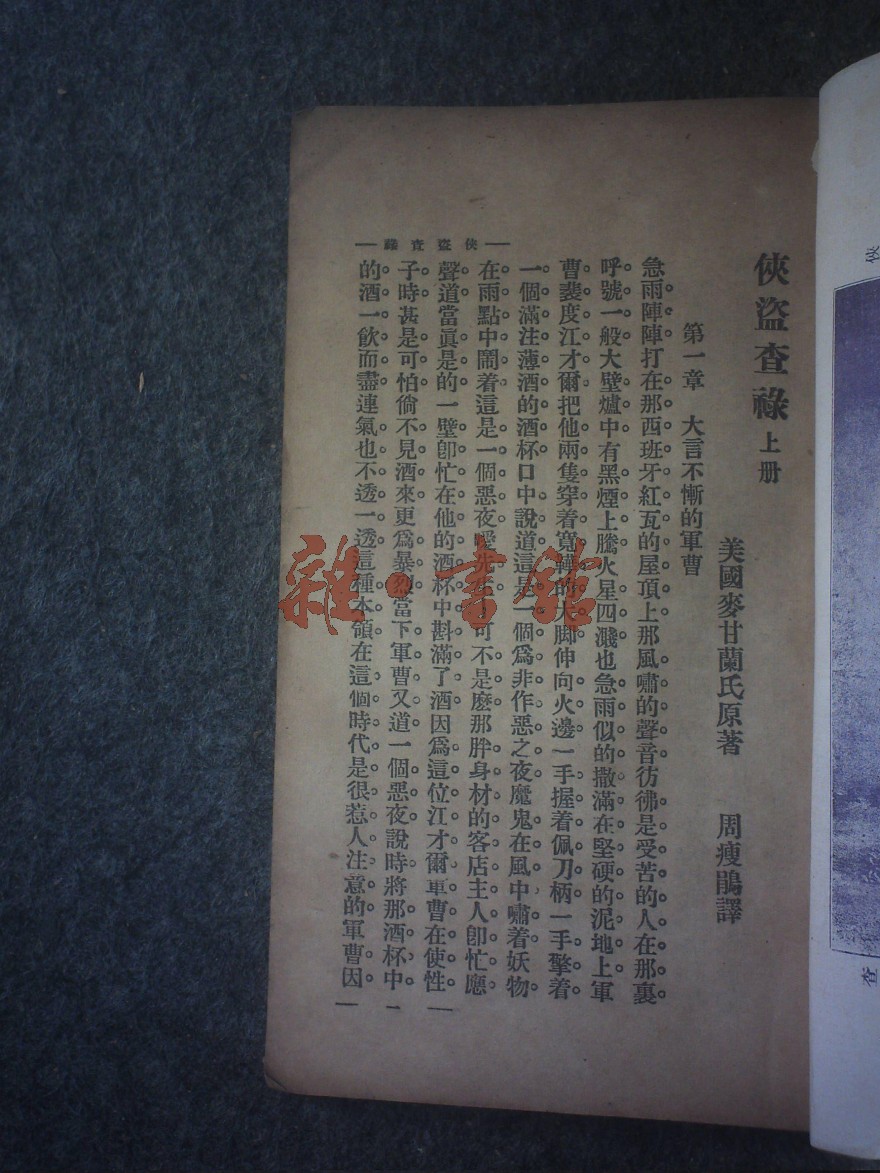 俠盜查祿 上册
美國麥甘蘭氏原著 周瘦鵑譯
第一章 大言不慚的軍曹
急雨陣陣打在那西班牙紅瓦的屋頂上那風嘯的聲音彷彿是受苦的人在那裏
呼號一般大壁爐中有黑煙上騰火星四濺也急雨似的撒滿在堅硬的泥地上軍
曹斐度江才爾把他兩隻穿着寬鞾的大脚伸向火邊一手握着佩刀柄一手擎着
一個滿注薄酒的酒杯口中說道這是一個爲非作惡之夜魔鬼在風中嘯着妖物
在雨點中鬧着這是一個惡夜噯先生可不是麽那胖身材的客店主人卽忙應
聲道當眞是的一壁卽忙在他的酒杯中斟滿了酒因爲這位江才爾軍曹在使性
子時甚是可怕倘不見酒來更爲暴烈當下軍曹又道一個惡夜說時將那酒杯中
的酒一飲而盡連氣也不透一透這種本領在這個時代是很惹人注意的軍曹因
俠盜查祿
一
雜·書館
俠
查